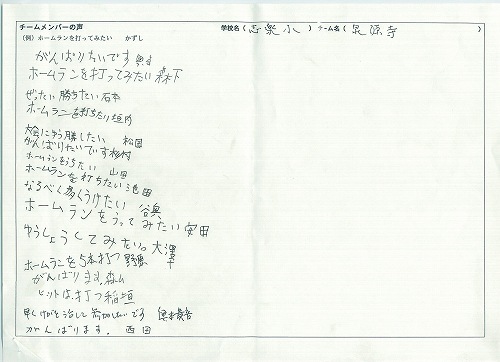 チームメンバーの声 学校名(志楽小) チーム名(泉源寺)
(例)ホームランを打ってみたい かずし
がんばりたいです
ホームランを打ってみたい 森下
ぜったい勝ちたい 石本
ホームランを打ちたい 垣内
大会にゆう勝したい 松岡
がんばりたいです 杉村
ホームランをうちたい 山田
ホームランを打ちたい 池田
なるべく多くうけたい 谷奥
ホームランをうってみたい 安田
ゆうしょうしてみたい。大澤
ホームランを5本打つ
がんばります。森山
ヒットは、打つ 稲垣
早くけがを治して
がんばります。 西田